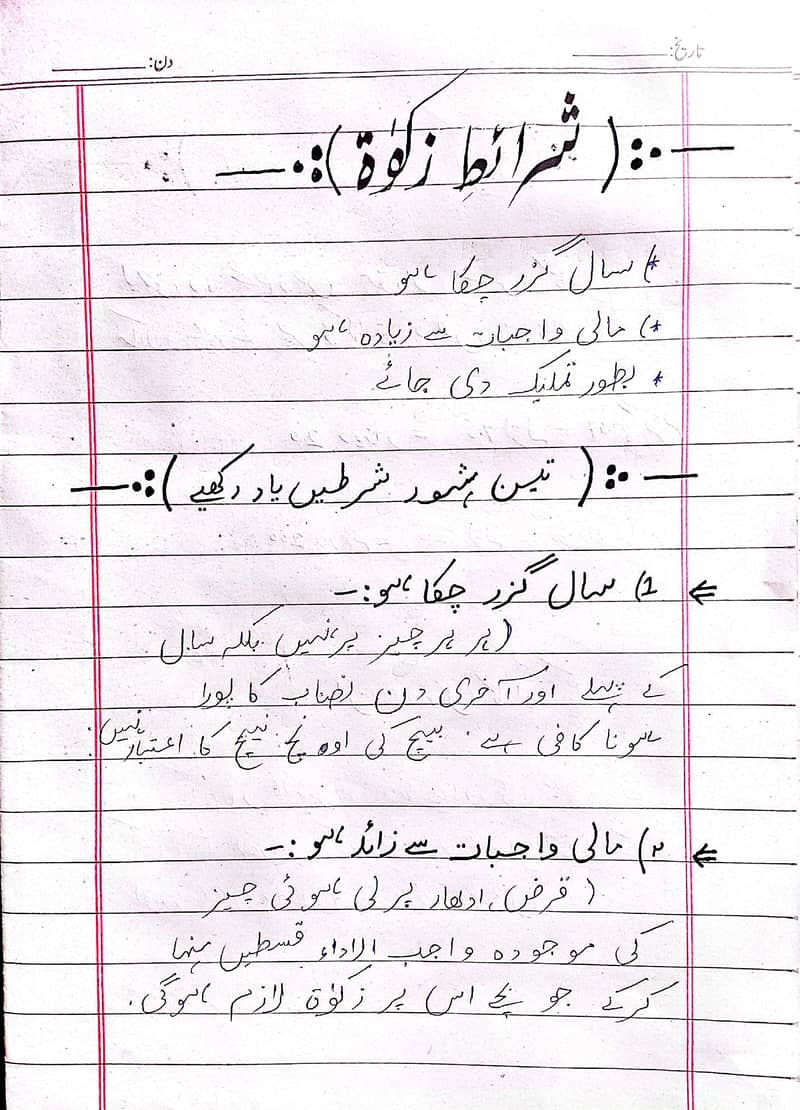 تاریخ: دن:
—·:( شرائطِ زکوٰۃ ):·—
*) سال گزر چکا ہو
*) مالی واجبات سے زیادہ ہو
* بطور تملیک دی جائے
—·:( تین مشہور شرطیں یاد رکھیے ):·—
⇐ 1) سال گزر چکا ہو:-
(ہر ہر چیز پر نہیں بلکہ سال
کے پہلے اور آخری دن نصاب کا پورا
ہونا کافی ہے۔ بیچ کی اونچ نیچ کا اعتبار نہیں۔
⇐ ۲) مالی واجبات سے زائد ہو:-
( قرض، ادھار پر لی ہوئی چیز
کی موجودہ واجب الاداء قسطیں منہا
کرکے جو بچے اس پر زکوٰۃ لازم ہوگی۔